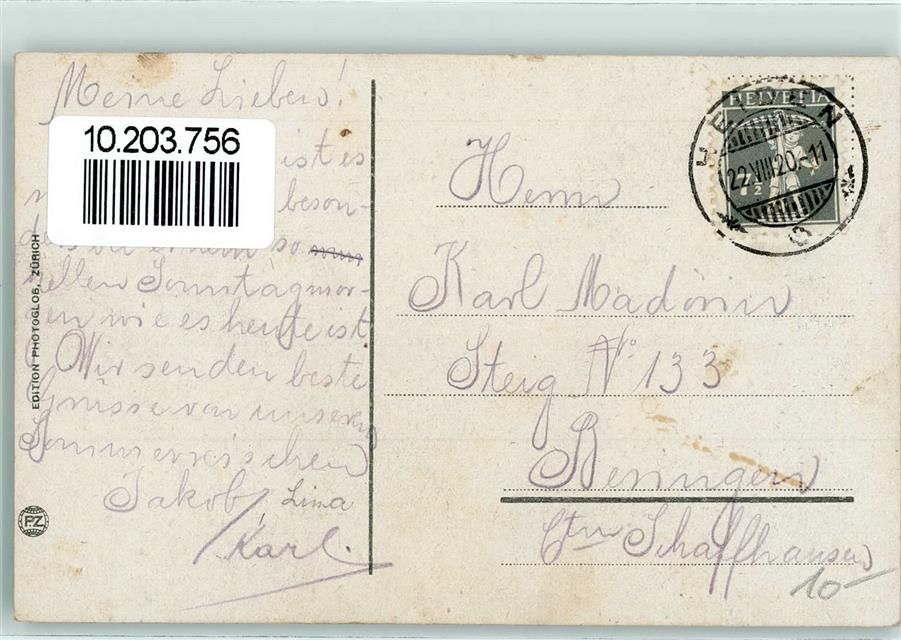 Meine Lieben!
10.203.756
ist es
beson-
so
hellen Sonntagmor-
gen wie es heute ist.
Wir senden beste
Grüsse von unserer
Jakob, Lina
Karl.
EDITION PHOTOGLOB, ZÜRICH
P.Z.
HELVETIA
7½
HEIDEN
22.VIII.20.-11
Herrn
Karl
Steig No 133
Schaffhausen
10-